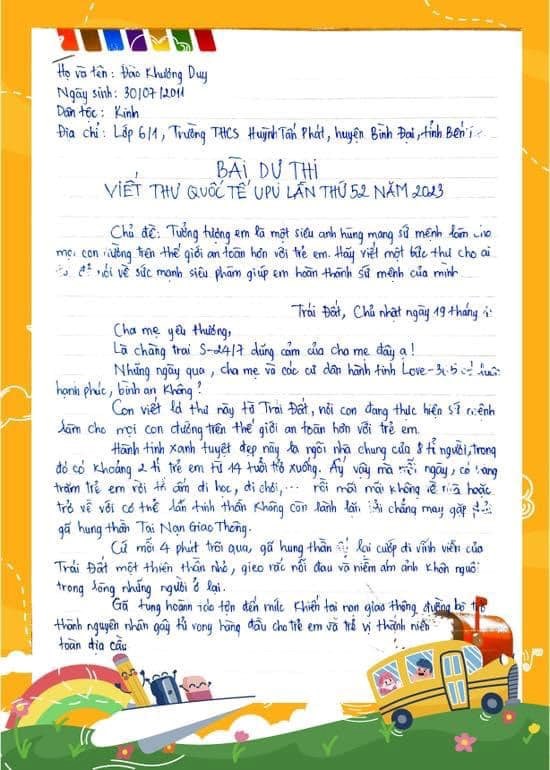 Họ và tên : Đào Khương Duy
Ngày sinh : 30/07/2011
Dân tộc : Kinh
Địa chỉ : Lớp 6/1 , Trường THCS Huỳnh Tấn Phát, huyện Bình Đại, tỉnh Bến
BÀI DỰ THI
VIẾT THƯ QUỐC TẾ UPU LẦN THỨ 52 NĂM 2023
Chủ đề: Tưởng tượng em là một siêu anh hùng mang sứ mệnh làm cho
mọi con đường trên thế giới an toàn hơn với trẻ em. Hãy viết một bức thư cho ai
về sức mạnh siêu phàm giúp em hoàn thành sứ mệnh của mình
Trái Đất, Chủ nhật ngày 19 tháng
Cha mẹ yêu thương,
Là chàng trai S-24/7 dũng cảm của cha mẹ đây ạ !
Những ngày qua , cha mẹ và các cư dân hành tinh Love-3
hạnh phúc, bình an không ?
Con viết lá thư này từ Trái Đất, nơi con đang thực hiện sứ mệnh
làm cho mọi con đường trên thế giới an toàn hơn với trẻ em.
Hành tinh xanh tuyệt đẹp này là ngôi nhà chung của 8 tỉ người, trong
đó có khoảng 2 tỉ trẻ em từ 14 tuổi trở xuống. Ấy vậy mà mỗi ngày, có hàng
trăm trẻ em rời tổ ấm đi học, đi chơi, ... rồi mãi mãi không về nhà hoặc
trở về với cơ thể lẫn tinh thần không còn lành lặn chẳng may gặp phải
gã hung thần Tai Nạn Giao Thông.
Cứ mỗi 4 phút trôi qua, gã hung thần ấy lại cướp đi vĩnh viễn của
Trái Đất một thiên thần nhỏ, gieo rắc nỗi đau và niềm ám ảnh khôn nguôi
trong lòng những người ở lại.
Gã tung hoành tới mức khiến tai nạn giao thông đường bộ trở
thành nguyên nhân gây tử vong hàng đầu cho trẻ em và trẻ vị thành niên
toàn địa cầu